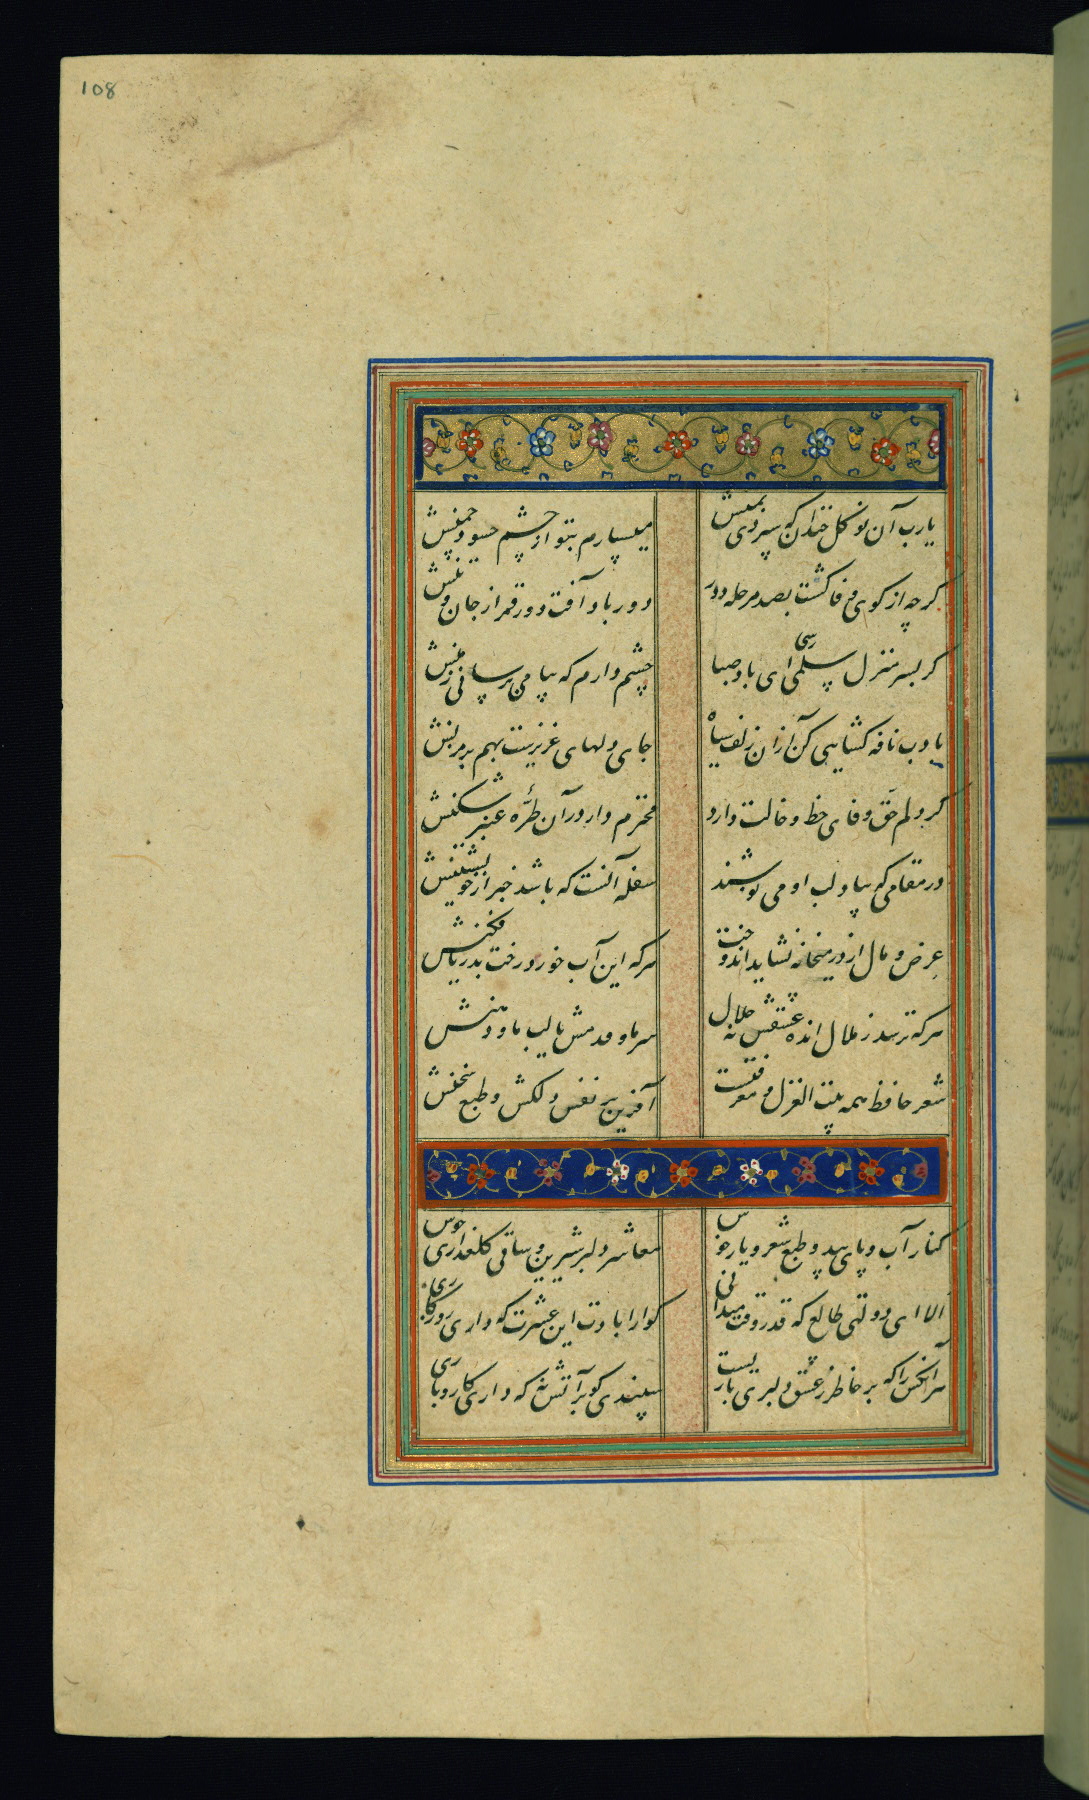 108
یارب آن نوگل خندان که سپردی بمنش
میسپارم بتو از چشم حسود چمنش
گرچه از کوی وفا گشت بصد مرحله دور
دور باد آفت دور قمر از جان و تنش
گر بسر منزل سلمی رسی ای باد صبا
چشم دارم که پیامی برسانی ز منش
بادب نافه گشایی کن از آن زلف سیاه
جای دلهای عزیزیست بهم بر مزنش
گر دلم حق وفای خط و خالت دارد
محترم دار در آن طره عنبر شکنش
در مقامی که بیاد لب او می نوشند
سفله آنست که باشد خبر از خویشتنش
عرض و مال از در میخانه نشاید اندوخت
هرکه این آب خورد رخت بدریا فکنش
هرکه ترسد ز ملال انده عشقش نه حلال
سر ما و قدمش یا لب ما و دهنش
شعر حافظ همه بیت الغزل معرفتست
آفرین بر نفس دلکش و طبع سخنش
کنار آب و پای بید و طبع شعر و یار خوش
معاشر دلبر شیرین و ساقی گلعذاری خوش
الا ای دولتی طالع که قدر وقت میدانی
گوارا بادت این عشرت که داری روزگاری
هر آنکس را که بر خاطر ز عشق دلبری باریست
سپندی گو بر آتش نه که داری کار و باری